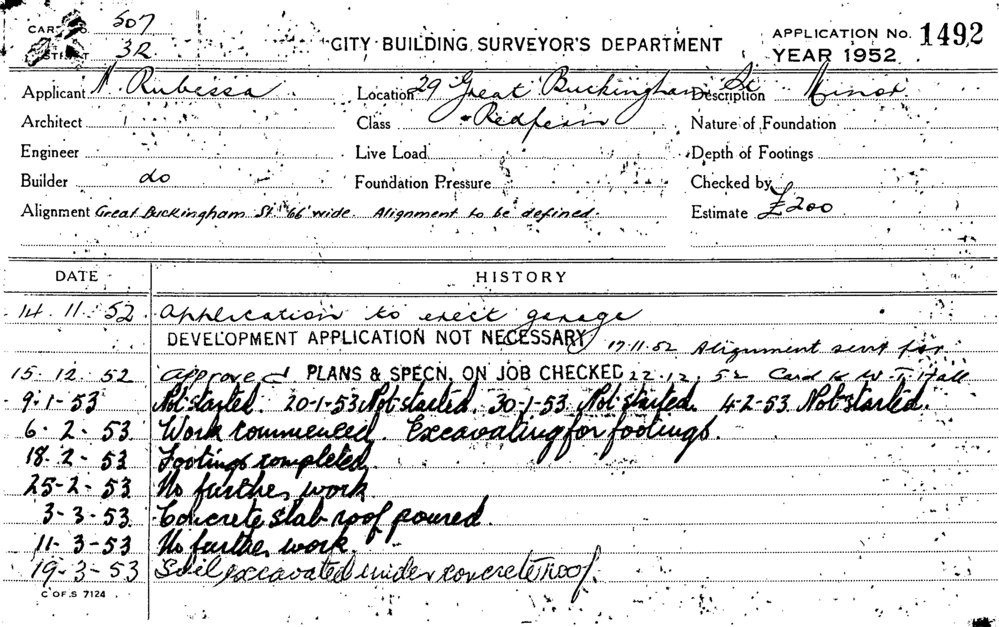 CARD No. 507
DISTRICT 32
CITY BUILDING SURVEYOR'S DEPARTMENT
APPLICATION No. 1492
YEAR 1952
Applicant N. Rubessa Location 29 Great Buckingham St Description Minor
Architect Class Redfern Nature of Foundation
Engineer Live Load Depth of Footings
Builder do Foundation Pressure Checked by
Alignment Great Buckingham St 66' wide. Alignment to be defined. Estimate £200
DATE HISTORY
14.11.52 Application to erect garage
DEVELOPMENT APPLICATION NOT NECESSARY 17.11.52 Alignment sent for
15.12.52 Approved PLANS & SPECN. ON JOB CHECKED 22.12.52 Card to W. T. Hall
9-1-53 Not started. 20-1-53 Not started. 30-1-53 Not started. 4-2-53. Not started.
6.2.53. Work commenced. Excavating for footings.
18.2-53 Footings completed.
25-2-53 No further work
3-3-53. Concrete slab roof poured.
11-3-53 No further work.
19-3-53 Soil excavated under concrete roof.
C OF S 7124